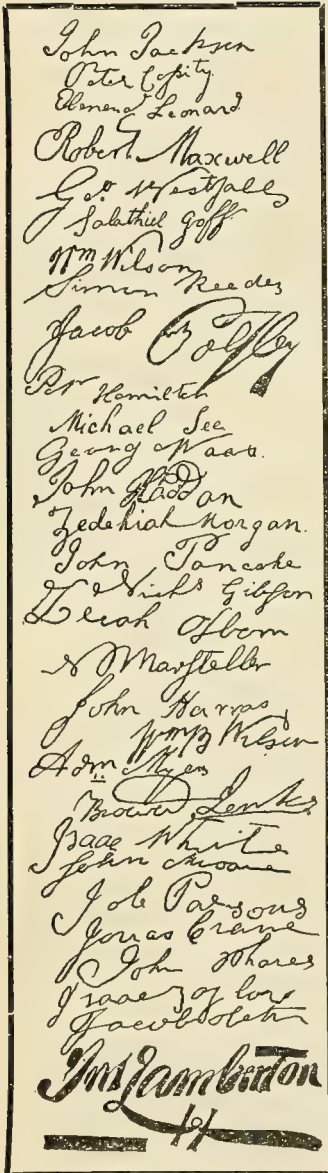 John Jackson
Peter Cosity
Edmund Leonard
Robert Maxwell
Geo Westfall
Salathiel Goff
Wm Wilson
Simon Reeder
Jacob
Hamilton
Michael See
Georg Waas.
John Haddan
Zedekiah Morgan.
John Pancake
Nichs Gibson
Zerah Osborn
Marsteller
John Harras
Wm B Wilson
Adm Myers
Brown Jenks
Isaac White
John
Job Parsons
Jonas Crane
John Phares
Isaac
Jacob
Lamberton